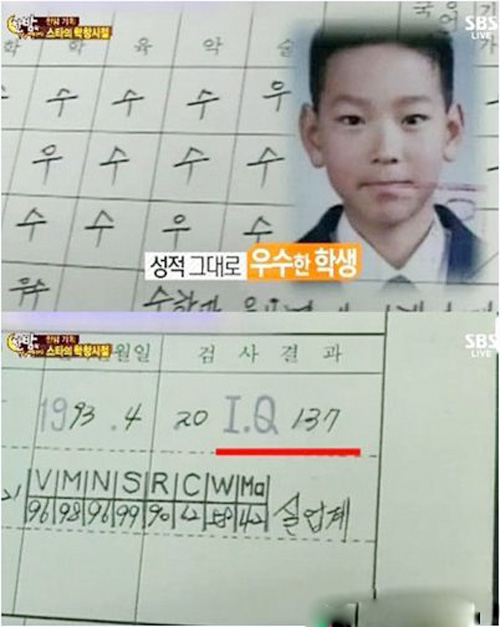 한밤 기획
스타의 학창시절
SBS
LIVE
국
어
학 육 악 술
수 수 수 수 우
우 수 수 수
수 수 우 수
우
성적 그대로 우수한 학생
한밤 기획
스타의 학창시절
SBS
LIVE
월일 검 사 결 과
1993.4 20 I.Q 137
V M N S R C W Ma
96 98 96 99 90 62 58 42 실업계